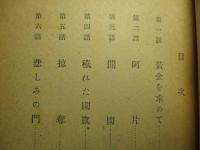 目次
第一話 黄金を求めて
第二話 阿片
第三話 開国
第四話 穢れた国旗
第五話 掠奪
第六話 悲しみの門